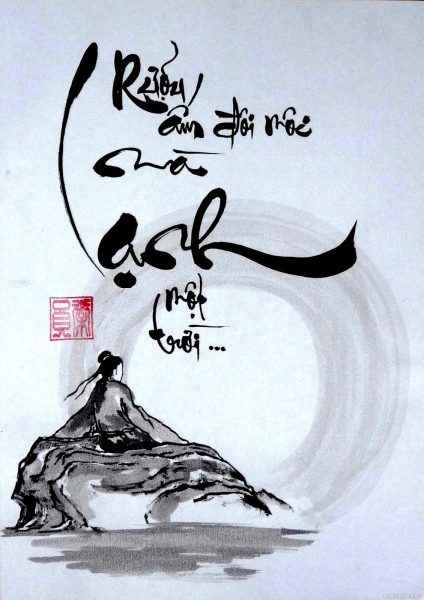 Rượu
ấm đôi môi
mà
lạnh
một
trời ...